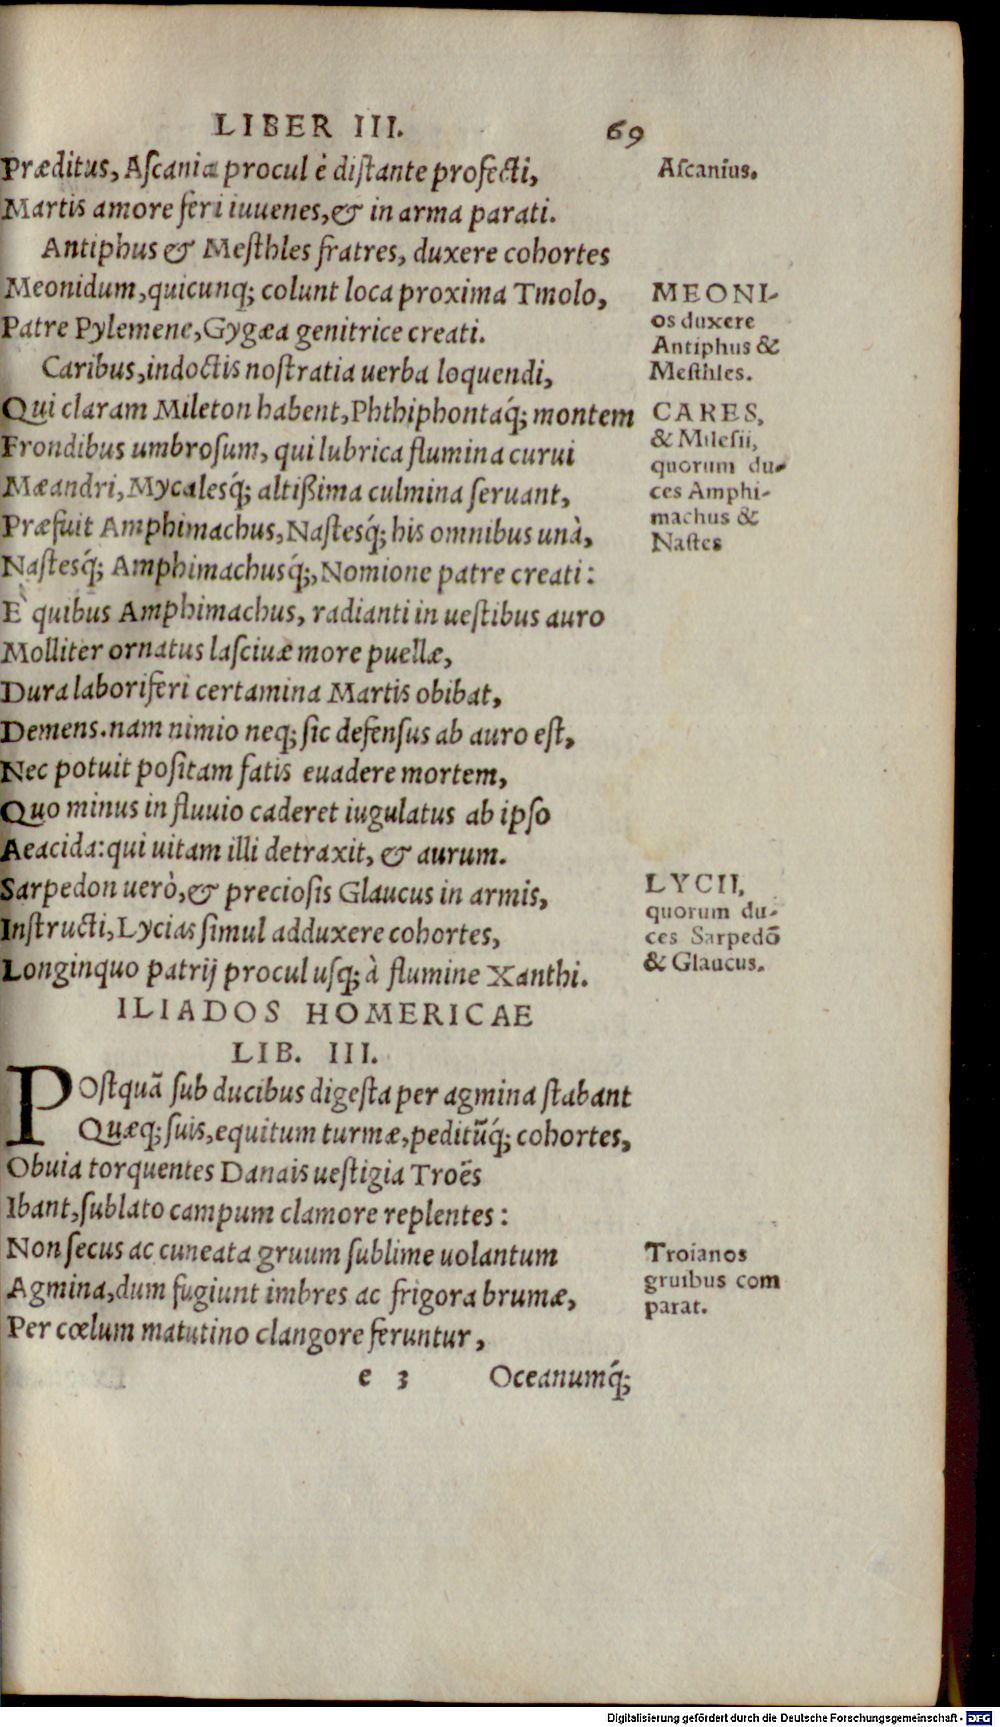 LIBER III. 69
Præditus, Aſcania procul è diſtante profecti,
Aſcanius.
Martis amore feri iuuenes, & in arma parati.
Antiphus & Meſthles fratres, duxere cohortes
Meonidum, quicunq; colunt loca proxima Tmolo,
Patre Pylemene, Gygæa genitrice creati.
MEONI-
os duxere
Antiphus &
Meſthles.
Caribus, indoctis noſtratia uerba loquendi,
Qui claram Mileton habent, Phthiphontaq́; montem
Frondibus umbroſum, qui lubrica flumina curui
Mæandri, Mycalesq́; altißima culmina ſeruant,
Præfuit Amphimachus, Naſtesq́; his omnibus unà,
CARES,
& Mileſii,
quorum du-
ces Amphi-
machus &
Naſtes
Naſtesq́; Amphimachusq́;, Nomione patre creati:
E` quibus Amphimachus, radianti in ueſtibus auro
Molliter ornatus laſciuæ more puellæ,
Dura laboriferi certamina Martis obibat,
Demens. nam nimio neq; ſic defenſus ab auro eſt,
Nec potuit poſitam fatis euadere mortem,
Quo minus in fluuio caderet iugulatus ab ipſo
Aeacida: qui uitam illi detraxit, & aurum.
Sarpedon uerò, & precioſis Glaucus in armis,
Inſtructi, Lycias ſimul adduxere cohortes,
Longinquo patrij procul uſq; à flumine Xanthi.
LYCII,
quorum du-
ces Sarpedō
& Glaucus.
ILIADOS HOMERICAE
LIB. III.
POſtquā ſub ducibus digeſta per agmina ſtabant
Quæq; ſuis, equitum turmæ, peditūq́; cohortes,
Obuia torquentes Danais ueſtigia Troës
Ibant, ſublato campum clamore replentes:
Non ſecus ac cuneata gruum ſublime uolantum
Agmina, dum fugiunt imbres ac frigora brumæ,
Per cœlum matutino clangore feruntur,
Troianos
gruibus com
parat.
e 3 Oceanumq́;
Digitalisierung gefördert durch die Deutsche Forschungsgemeinschaft - DFG